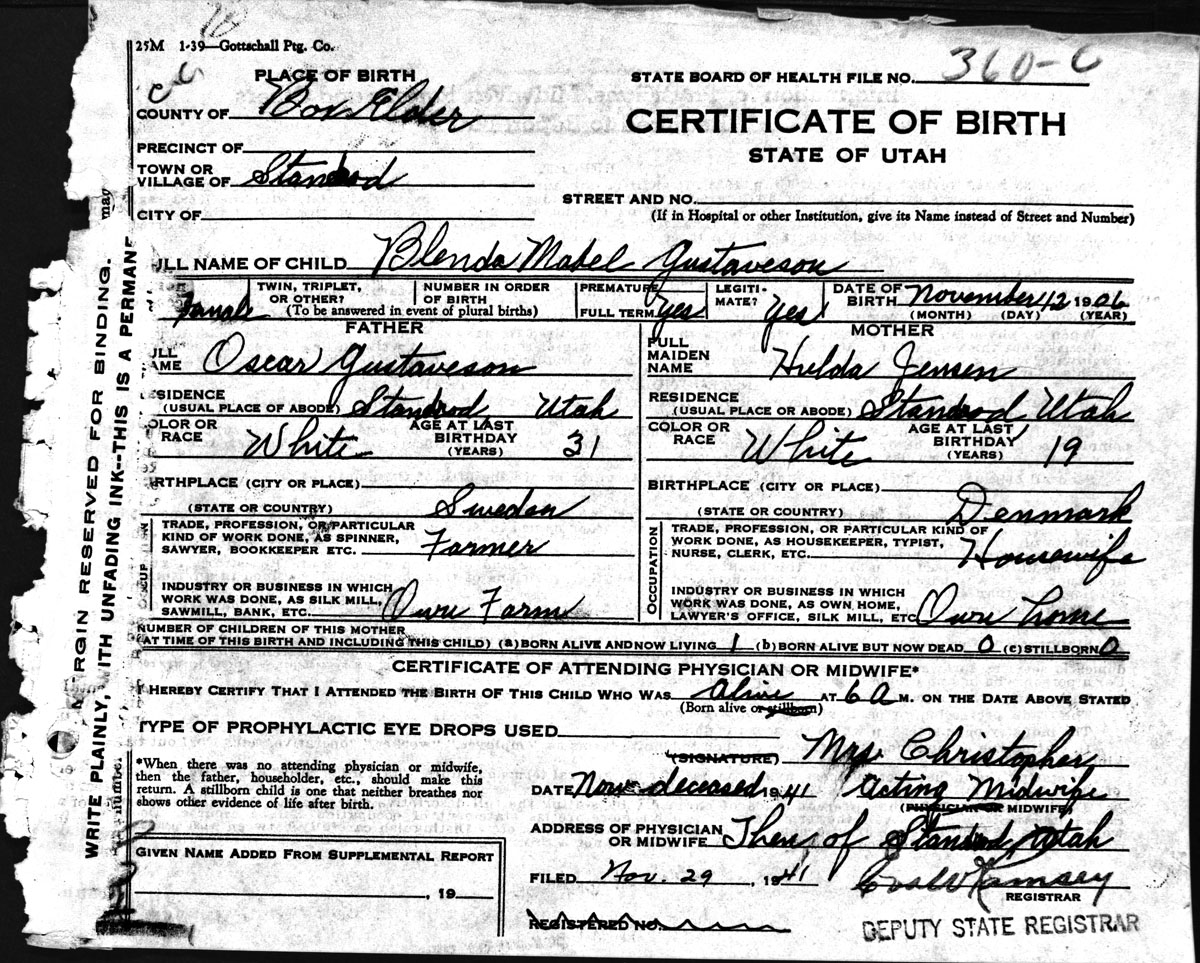 25M 1-39—Gottschall Ptg. Co.
STATE BOARD OF HEALTH FILE NO. 360-C
PLACE OF BIRTH
COUNTY OF Box Elder
CERTIFICATE OF BIRTH
STATE OF UTAH
PRECINCT OF
TOWN OR
VILLAGE OF Standrod
CITY OF
STREET AND NO.
(If in Hospital or other Institution, give its Name instead of Street and Number)
ULL NAME OF CHILD Blenda Mabel Gustaveson
Female
TWIN, TRIPLET,
OR OTHER?
NUMBER IN ORDER
OF BIRTH
(To be answered in event of plural births)
PREMATURE
FULL TERM Yes
LEGITI-
MATE? Yes
DATE OF
BIRTH November 12 1906
(MONTH) (DAY) (YEAR)
FATHER
ULL
AME Oscar Gustaveson
ESIDENCE
(USUAL PLACE OF ABODE) Standrod, Utah
COLOR OR
RACE White
AGE AT LAST
BIRTHDAY 31
(YEARS)
IRTHPLACE (CITY OR PLACE)
(STATE OR COUNTRY) Sweden
OCCUPATION
TRADE, PROFESSION, OR PARTICULAR
KIND OF WORK DONE, AS SPINNER,
SAWYER, BOOKKEEPER ETC. Farmer
INDUSTRY OR BUSINESS IN WHICH
WORK WAS DONE, AS SILK MILL,
SAWMILL, BANK, ETC. Own Farm
MOTHER
FULL
MAIDEN
NAME Hulda Jensen
RESIDENCE
(USUAL PLACE OR ABODE) Standrod Utah
COLOR OR
RACE White
AGE AT LAST
BIRTHDAY 19
(YEARS)
BIRTHPLACE (CITY OR PLACE)
(STATE OR COUNTRY) Denmark
OCCUPATION
TRADE, PROFESSION, OR PARTICULAR KIND OF
WORK DONE, AS HOUSEKEEPER, TYPIST,
NURSE, CLERK, ETC. Housewife
INDUSTRY OR BUSINESS IN WHICH
WORK WAS DONE, AS OWN HOME,
LAWYER'S OFFICE, SILK MILL, ETC Own home
NUMBER OF CHILDREN OF THIS MOTHER
(AT TIME OF THIS BIRTH AND INCLUDING THIS CHILD) (a) BORN ALIVE AND NOW LIVING 1 (b) BORN ALIVE BUT NOW DEAD 0 (c) STILLBORN 0
CERTIFICATE OF ATTENDING PHYSICIAN OR MIDWIFE*
I HEREBY CERTIFY THAT I ATTENDED THE BIRTH OF THIS CHILD WHO WAS Alive AT 6 A M. ON THE DATE ABOVE STATED
(Born alive or stillborn)
TYPE OF PROPHYLACTIC EYE DROPS USED
(SIGNATURE) Mrs Christopher
*When there was no attending physician or midwife,
then the father, householder, etc., should make this
return. A stillborn child is one that neither breathes nor
shows other evidence of life after birth.
DATE Now deceased 1941 Acting Midwife
(PHYSICIAN OR MIDWIFE)
ADDRESS OF PHYSICIAN
OR MIDWIFE Then of Standrod, Utah
GIVEN NAME ADDED FROM SUPPLEMENTAL REPORT
, 19
FILED Nov. 29, 1941
REGISTRAR
REGISTERED NO.
DEPUTY STATE REGISTRAR
MARGIN RESERVED FOR BINDING.
WRITE PLAINLY, WITH UNFADING INK--THIS IS A PERMANE